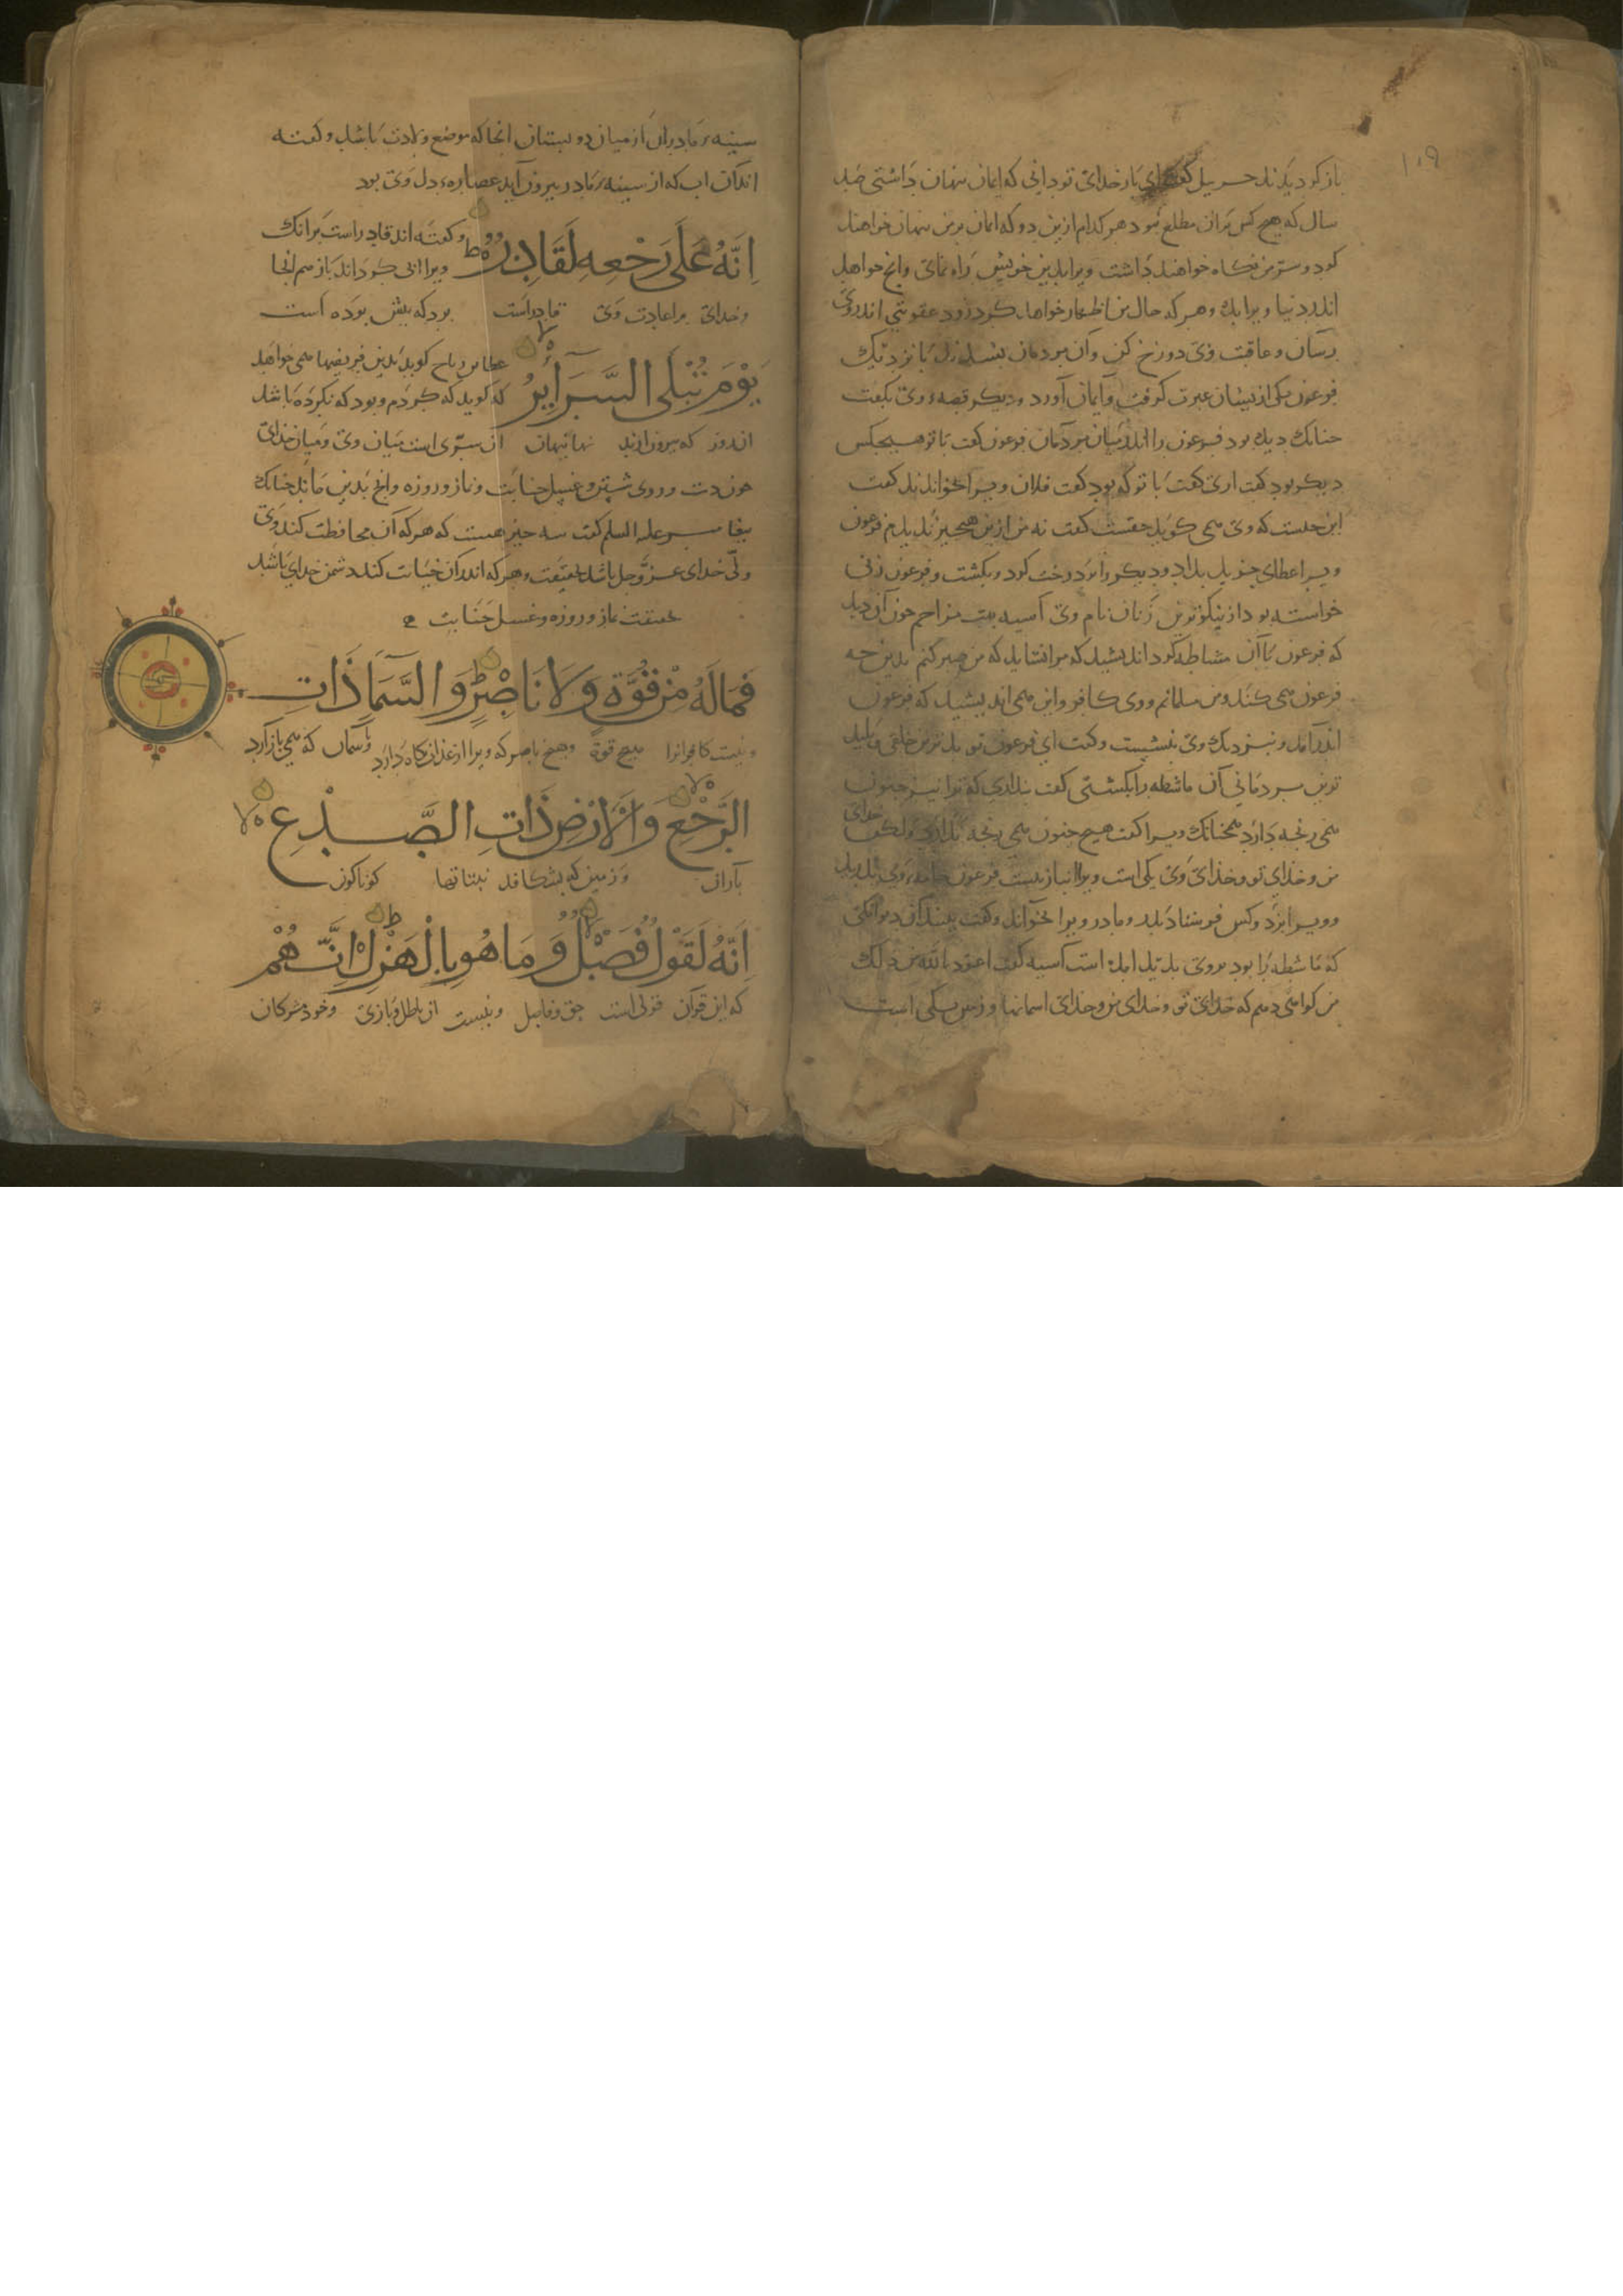 ۱۰۹
باز کردیدند حزبیل گفت ای بار خدای تو دانی که ایمان پنهان داشتی صد
سال که هیچ کس بران مطلع نبود هر کدام ازین دو که ایمان برمن پنهان خواهند
کرد و ستر من نگاه خواهند داشت ویرا بدین خویش راه نمای وانچ خواهد
اندر دنیا ویرا بده وهر که حال من اظهار خواهد کرد زود عقوبتی اندر وی
رسان وعاقبت وی دوزخ کن وان مردمان بشدند تا نزدیک
فرعون یکی ازیشان عبرت گرفت وایمان آورد ودیگر قصه وی بگفت
چنانک دیده بود فرعون را اندر میان مردمان فرعون گفت با تو هیچکس
دیگر بود گفت اری گفت با تو که بود گفت فلان ویرا بخواندند گفت
این حدیث که وی می گوید حقست گفت نه من ازین هیچیز ندیدم فرعون
ویرا عطای جزیل بداد ودیگر را بر درخت کرد وبکشت وفرعون زنی
خواسته بود از نیکوترین زنان نام وی آسیه بنت مزاحم چون آن دید
که فرعون با آن مشاطه کرد اندیشید که مرا نشاید که من صبر کنم بدین چه
فرعون می کند ومن مسلمانم ووی کافر واین می اندیشید که فرعون
اندر آمد وبنزدیک وی بنشست وگفت ای فرعون تو بدترین خلقی وپلید
ترین مردمانی آن ماشطه را بکشتی گفت پنداری که ترا نیز جنون
می رنجه دارد همچنانک ویرا گفت هیچ جنون می رنجه ندارد ولکن خدای
من وخدای تو وخدای وی یکی است ویرا انباز نیست فرعون جامه وی بدرید
وویرا بزد وکس فرستاد پدر ومادر ویرا بخواند وگفت بینید آن دیوانگی
که ماشطه را بود بروی پدید امده است آسیه گفت اعوذ بالله من ذلک
من گواهی دهم که خدای تو وخدای من وخدای اسمانها وزمین یکی است
سینهٔ مادران از میان دو پستان انجا که موضع ولادت باشد وگفته
اند آن اب که از سینهٔ مادر بیرون آید عصارهٔ دل وی بود
اِنَّهُ عَلَی رَجْعِهِ لَقَادِرٌ ط
وگفته اند قادر است برانک
ویرا انی گرداند باز هم انجا
وخدای بر اعادت وی قادر است
برد که پیش بوده است
یَوْمَ تُبْلَی السَّرَایِرُ
عطا بن رباح گوید بدین فریضها می خواهد
که گوید که کردم وبود که نکرده باشد
ان روز که بیرون ارند نهانیهان
ان سرّی است میان وی ومیان خدای
چون دست وروی شستن وغسل جنابت ونماز وروزه وانچ بدین ماند چنانک
پیغامبر علیه السلم گفت سه چیز هست که هر که آن محافظت کند وی
ولی خدای عزوجل باشد بحقیقت وهر که اندر آن خیانت کند دشمن خدای باشد
بحقیقت نماز وروزه وغسل جنابت
فَمَا لَهُ مِنْ قُوَّةٍ وَلَا نَاصِرٍ ط وَالسَّمَاءِ ذَاتِ
ونیست کافرانرا هیچ قوة وهیچ ناصر که ویرا از عذاب نگاه دارد
باسمان که می باز آرد
الرَّجْعِ لا وَالْاَرْضِ ذَاتِ الصَّدْعِ لا
باران وزمین که بشکافد نباتها گوناگون
اِنَّهُ لَقَوْلٌ فَصْلٌ لا وَمَا هُوَ بِالْهَزْلِ ط اِنَّهُمْ
که این قرآن قولی است حق وفاصل ونیست از باطل وبازی وخود مشرکان